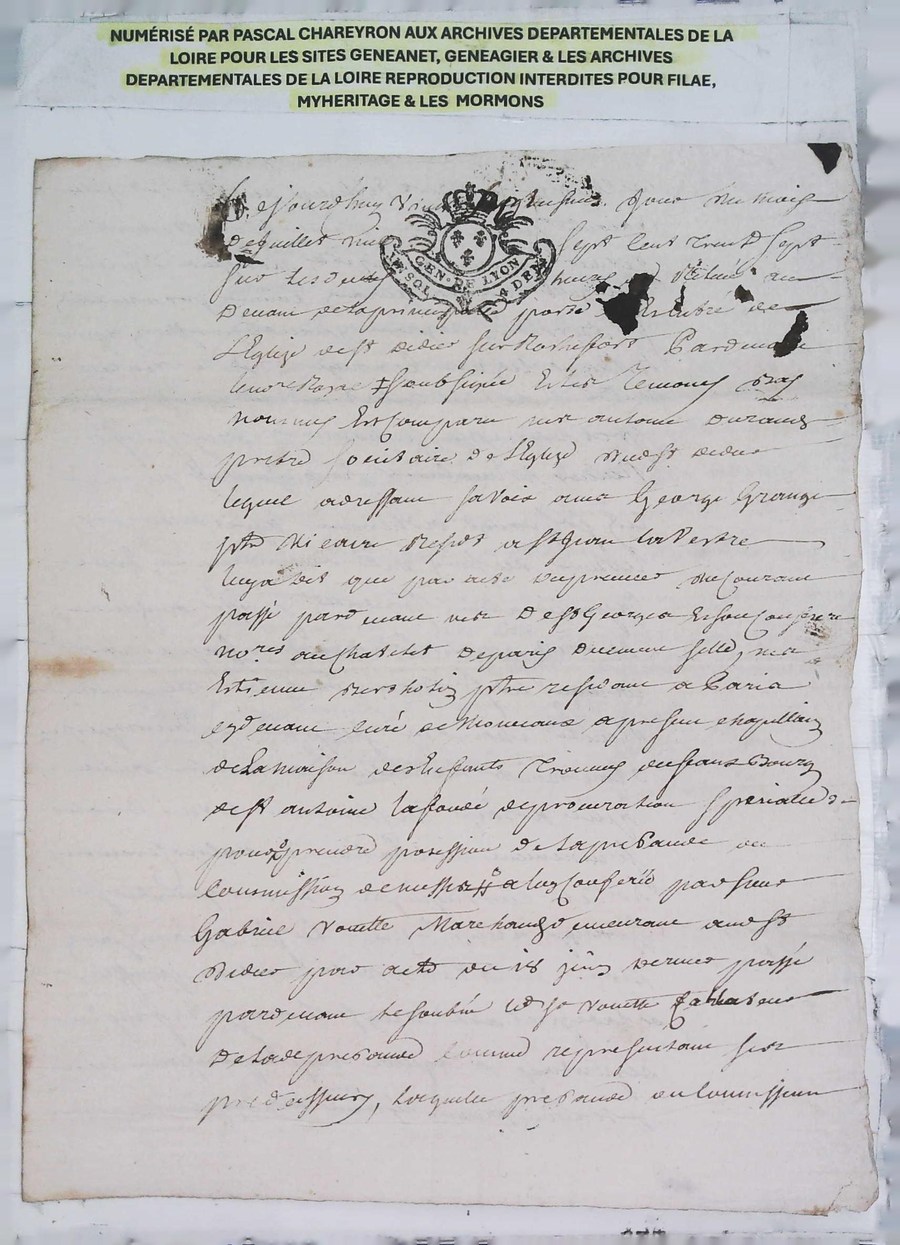 NUMÉRISÉ PAR PASCAL CHAREYRON AUX ARCHIVES DEPARTEMENTALES DE LA
LOIRE POUR LES SITES GENEANET, GENEAGIER & LES ARCHIVES
DEPARTEMENTALES DE LA LOIRE REPRODUCTION INTERDITES POUR FILAE,
MYHERITAGE & LES MORMONS
Cejourdhuy jour du mois
de juillet mil sept cent trente sept
GEN. DE LYON
sur les heures
1 SOL 4 DEN
devant de la principale porte de
L'Eglise de St Didier sur Rochefort Pardevant
le nore Royal soubsigné et les temoins bas
nommés Est comparu mre antoine Durand
pretre societaire de l'Eglise dud St didier
lequel adressant sa voix a mre George Grange
ptre vicaire a St Jean la Vestre
luy a dit que par acte du premier du courant
passé pardevant mre De St Georges et son confrere
nores au Chatelet de paris
Estienne ptre residant a Paris
cydevant curé de a present chapellain
de La maison des Enfants Trouvés du faux Bourg
de St antoine la fondé de procuration specialle
pour prendre posession de la prebande ou
commission de messes a luy Conferée par sieur
Gabriel Marchand demeurant aud St
Didier par acte du 18 juin dernier passé
pardevant le soubné led Sr
de lade prebande comme representant ses
predecesseurs, laquelle prebande ou commission